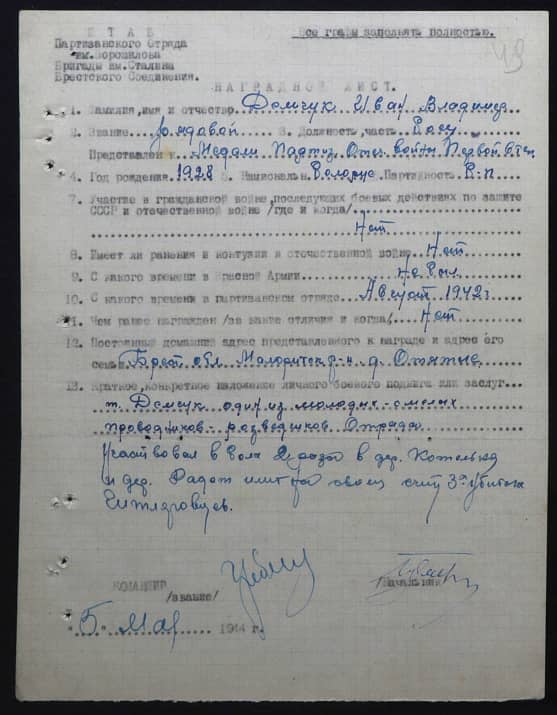 ШТАБ
Все графы заполнять полностью.
Партизанского Отряда
им.Ворошилова
Бригады им.Сталина
Брестского Соединения.
49
НАГРАДНОЙ ЛИСТ.
1. Фамилия,имя и отчество Демчук Иван Владимир
2. Звание рядавой 3. Должность,часть Разу.
Представлен к Медали Партиз. Отеч войны Первой Степ
4. Год рождения 1928 5. Национальн. Белорус. Партийность Б-п
7. Участие в гражданской войне,последующих боевых действиях по защите
СССР и отечественной войне /где и когда/
Нет
8. Имеет ли ранения и контузии в отечественной войне Нет
9. С какого времени в Красной Армии не был
10. С какого времени в партизанском отряде Август 1942г
11. Чем ранее награжден /за какие отличия и когда/ Нет
12. Постоянный домашний адрес представляемого к награде и адрес его
семьи Брест обл Малоритск р-н д
13. Краткое,конкретное изложение личного боевого подвига или заслуг
т. Демчук один из молодых-смелых
проводников-разведчиков Отряда
Участвовал в в дер.
и дер. имет на своем счету 3х убитых
Гитлеровцев.
КОМАНДИР
Начальник
/звание/
"5" Мая 1944 г.